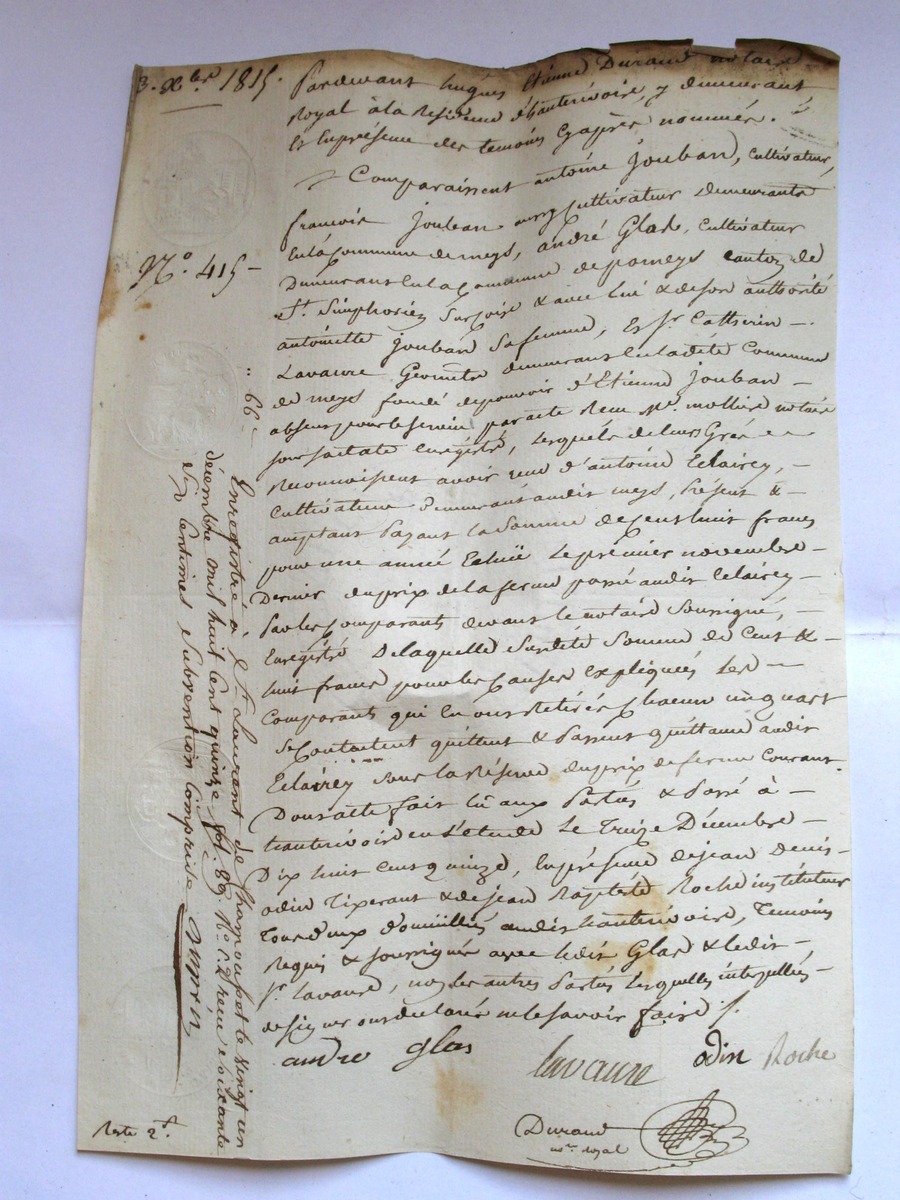 3. Xbre 1815.
Pardevant hugues Etienne Durand notaire
Royal à la Residence d'hauterivoire, y demeurant
et En présence des temoins Cy après nommés.
Comparaissent antoine Jouban, Cultivateur,
francois Jouban aussy Cultivateur Demeurants
En la Commune de meys, andré Glas, Cultivateur
Demeurant En la Commune de pomeys canton de
St. Simphorien Sur Coise & avec lui & de son authorité
antoinette Jouban Sa femme, Et Sr. Catherin
Lavaure Géometre demeurant En la dite Commune
de meys fondé de pouvoir d'Etienne Jouban
absent pour le service par acte Recu Me. notaire
sous sa date Enrégistré, Lesquels de leurs Grés
Reconnoissent avoir recu d'antoine Eclairey,
Cultivateur Demeurant audit meys, Présent &
acceptant Payant la Somme de Cent huit francs
pour une année Echüe Le prémier novembre
Dernier du prix de la ferme passé audit Eclairey
Par les Comparants devant le notaire Soussigné,
Enrégistré De laquelle Susdite Somme de Cent &
huit francs pour les Causes Expliqueés Les
Comparants qui En ont Retirés Chacun un quart
Se Contentent quittent & Passent quittance audit
Eclairey Sous la Réserve du prix de ferme Courant.
Dont acte fait lû aux Parties & Passé à
hauterivoire en L'étude Le Treize Décembre
Dix huit Cent quinze, En présence de jean Denis
odin Tixerant & de jean Baptiste Roche instituteur
Tous deux domiciliés audit hauterivoire, Temoins
Requis & soussignés avec ledit Glas & ledit
Sr. Lavaure, non les autres Parties Lesquelles interpellées
de signer ont déclaré ne le savoir faire
andre glas
lavaure
odin Roche
Durand
nore. royal
No. 415
66
Enregistré à St. Laurent de Chamousset le vingt un
décembre mil huit cent quinze fol. 89. Ro. C. recu soixante
six Centimes subvention Comprise
Reste 2f.